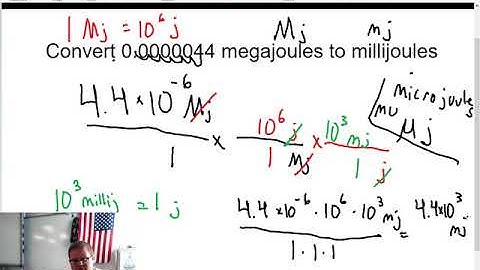 1 Mj = 10^6 j Mj mj
Convert 0.0000044 megajoules to millijoules
4.4 × 10^-6 Mj / 1 × 10^6 j / 1 Mj × 10^3 mj / 1 j
microjoules
mu μj
10^3 millij = 1 j
4.4×10^-6 · 10^6 · 10^3 mj / 1·1·1 = 4.4×10^3 mj